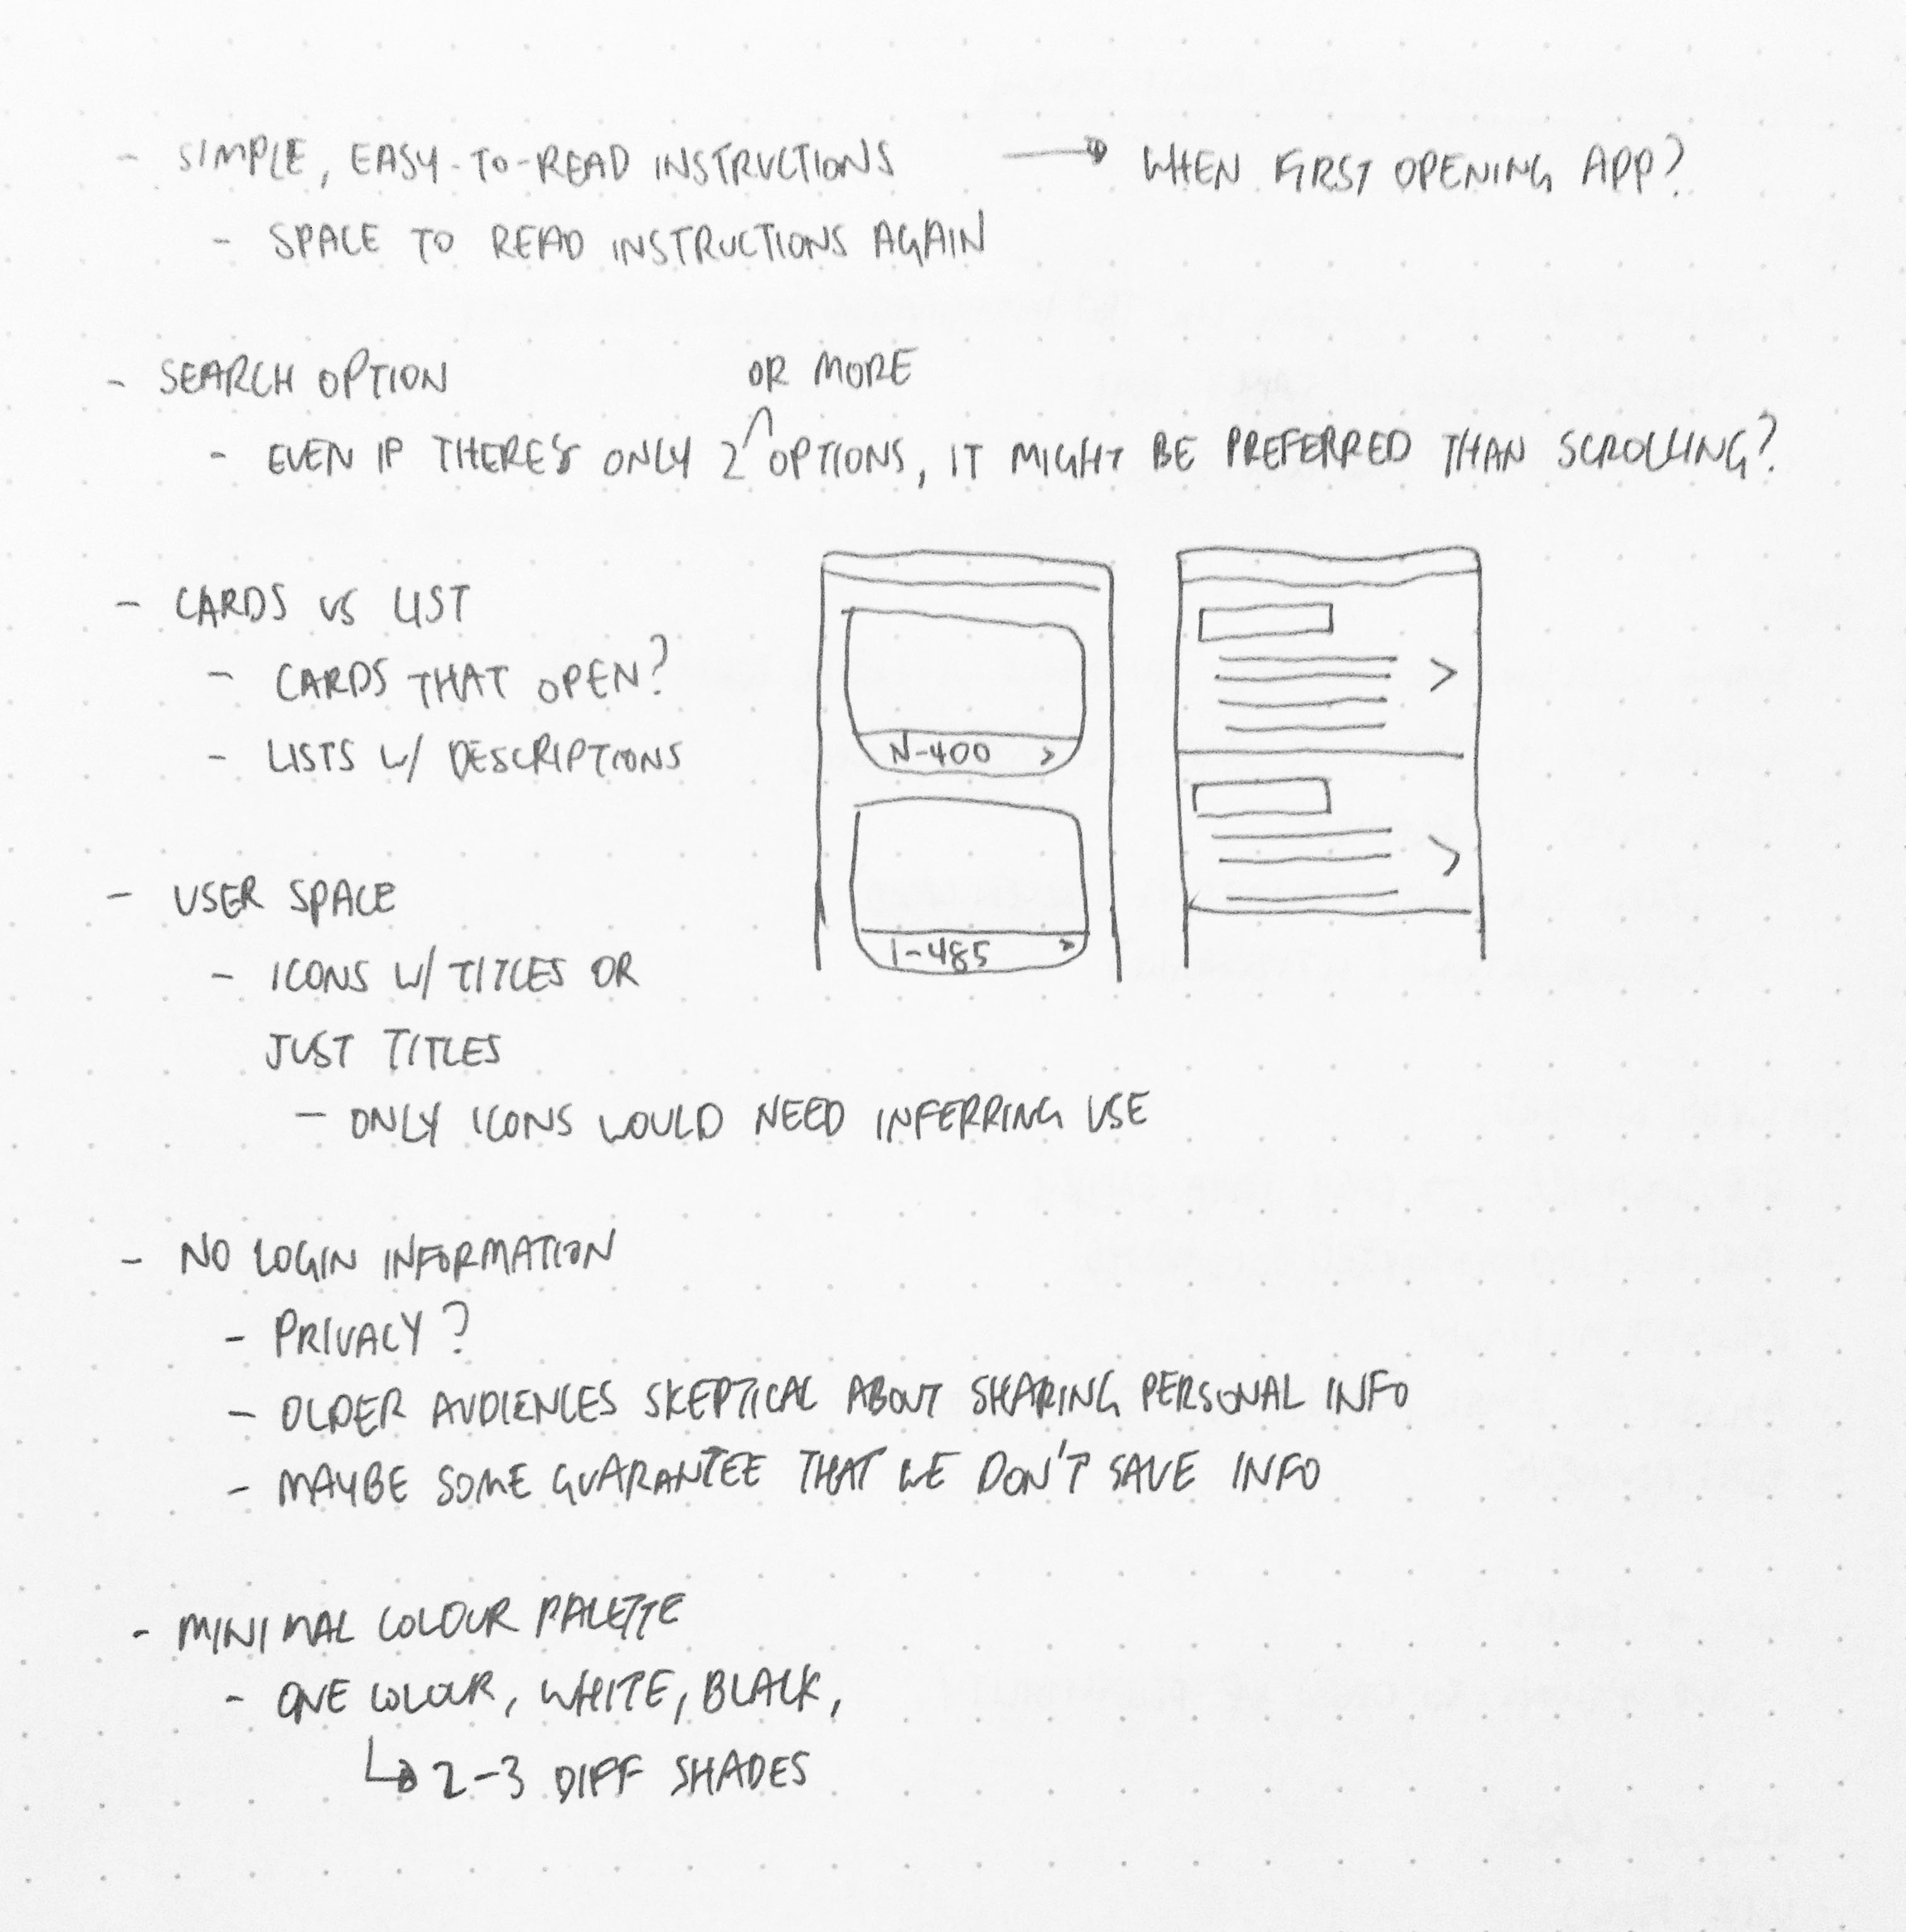 - SIMPLE, EASY-TO-READ INSTRUCTIONS → WHEN FIRST OPENING APP?
- SPACE TO READ INSTRUCTIONS AGAIN
- SEARCH OPTION
OR MORE
- EVEN IF THERE'S ONLY 2 ^ OPTIONS, IT MIGHT BE PREFERRED THAN SCROLLING?
- CARDS VS LIST
- CARDS THAT OPEN?
- LISTS W/ DESCRIPTIONS
N-400 >
I-485 >
>
>
- USER SPACE
- ICONS W/ TITLES OR
JUST TITLES
- ONLY ICONS WOULD NEED INFERRING USE
- NO LOGIN INFORMATION
- PRIVACY?
- OLDER AUDIENCES SKEPTICAL ABOUT SHARING PERSONAL INFO
- MAYBE SOME GUARANTEE THAT WE DON'T SAVE INFO
- MINIMAL COLOUR PALETTE
- ONE COLOUR, WHITE, BLACK,
↳ 2-3 DIFF SHADES